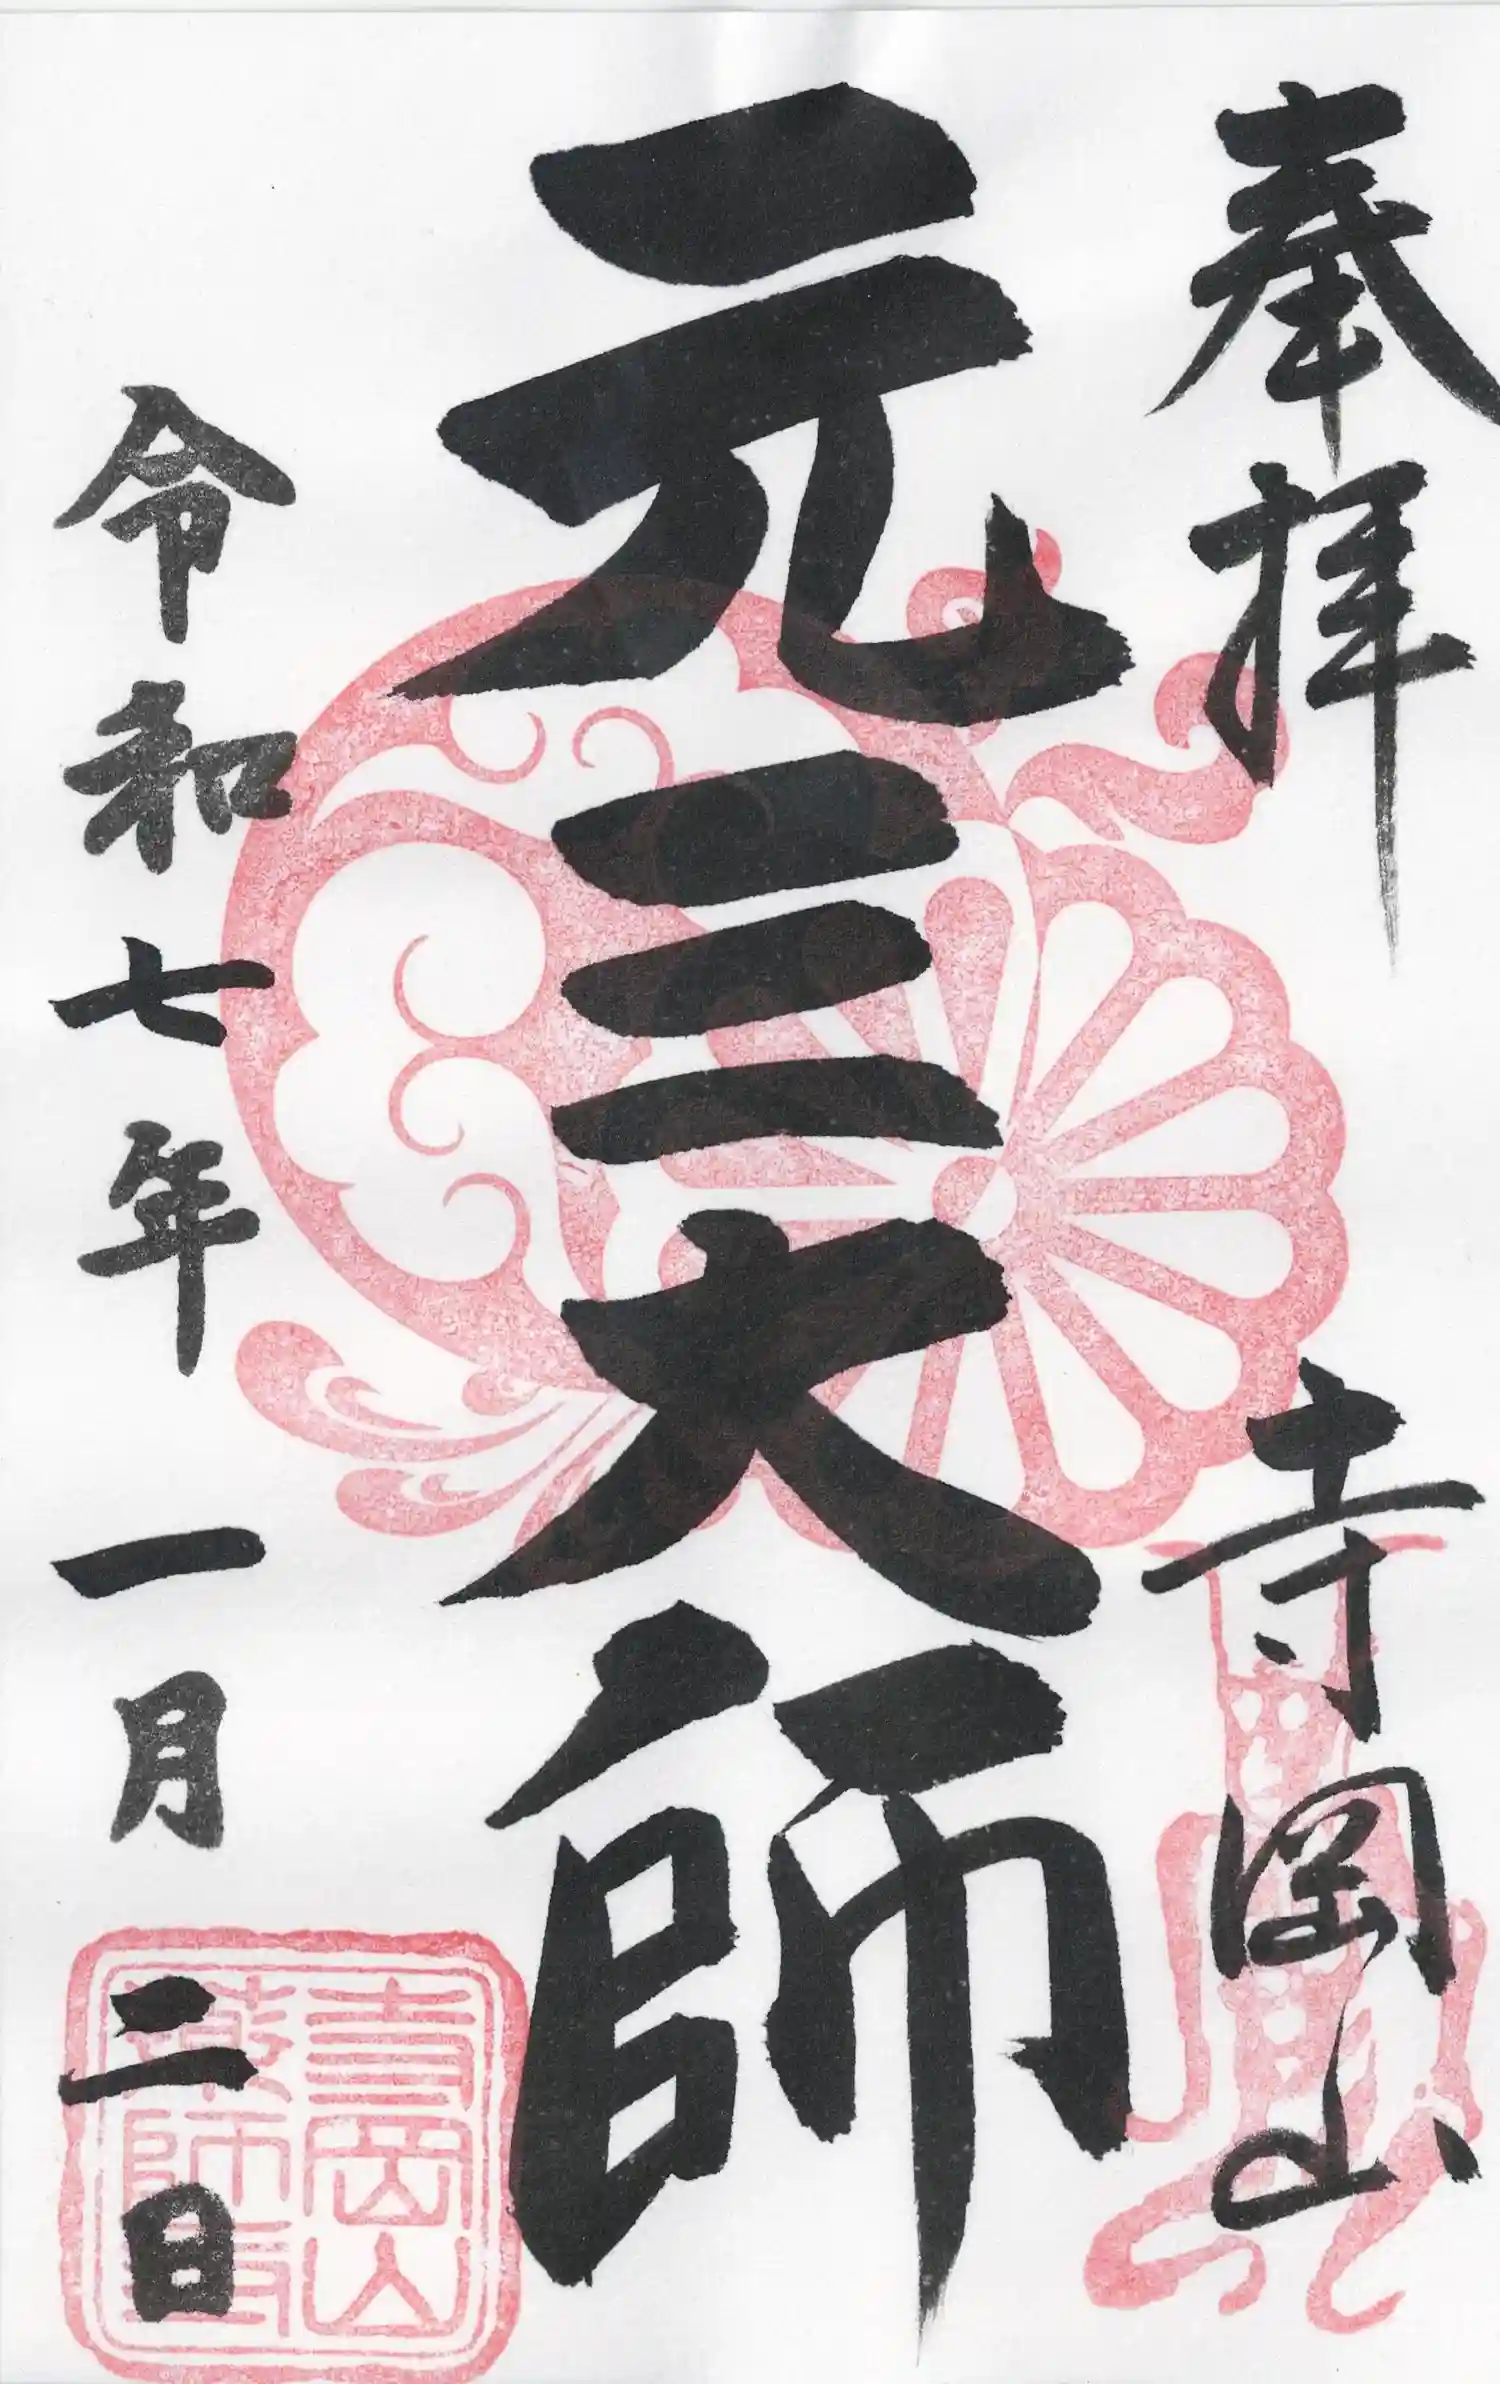 奉拝
寺岡山
元三大師
令和七年一月二日
寺岡山
薬師寺